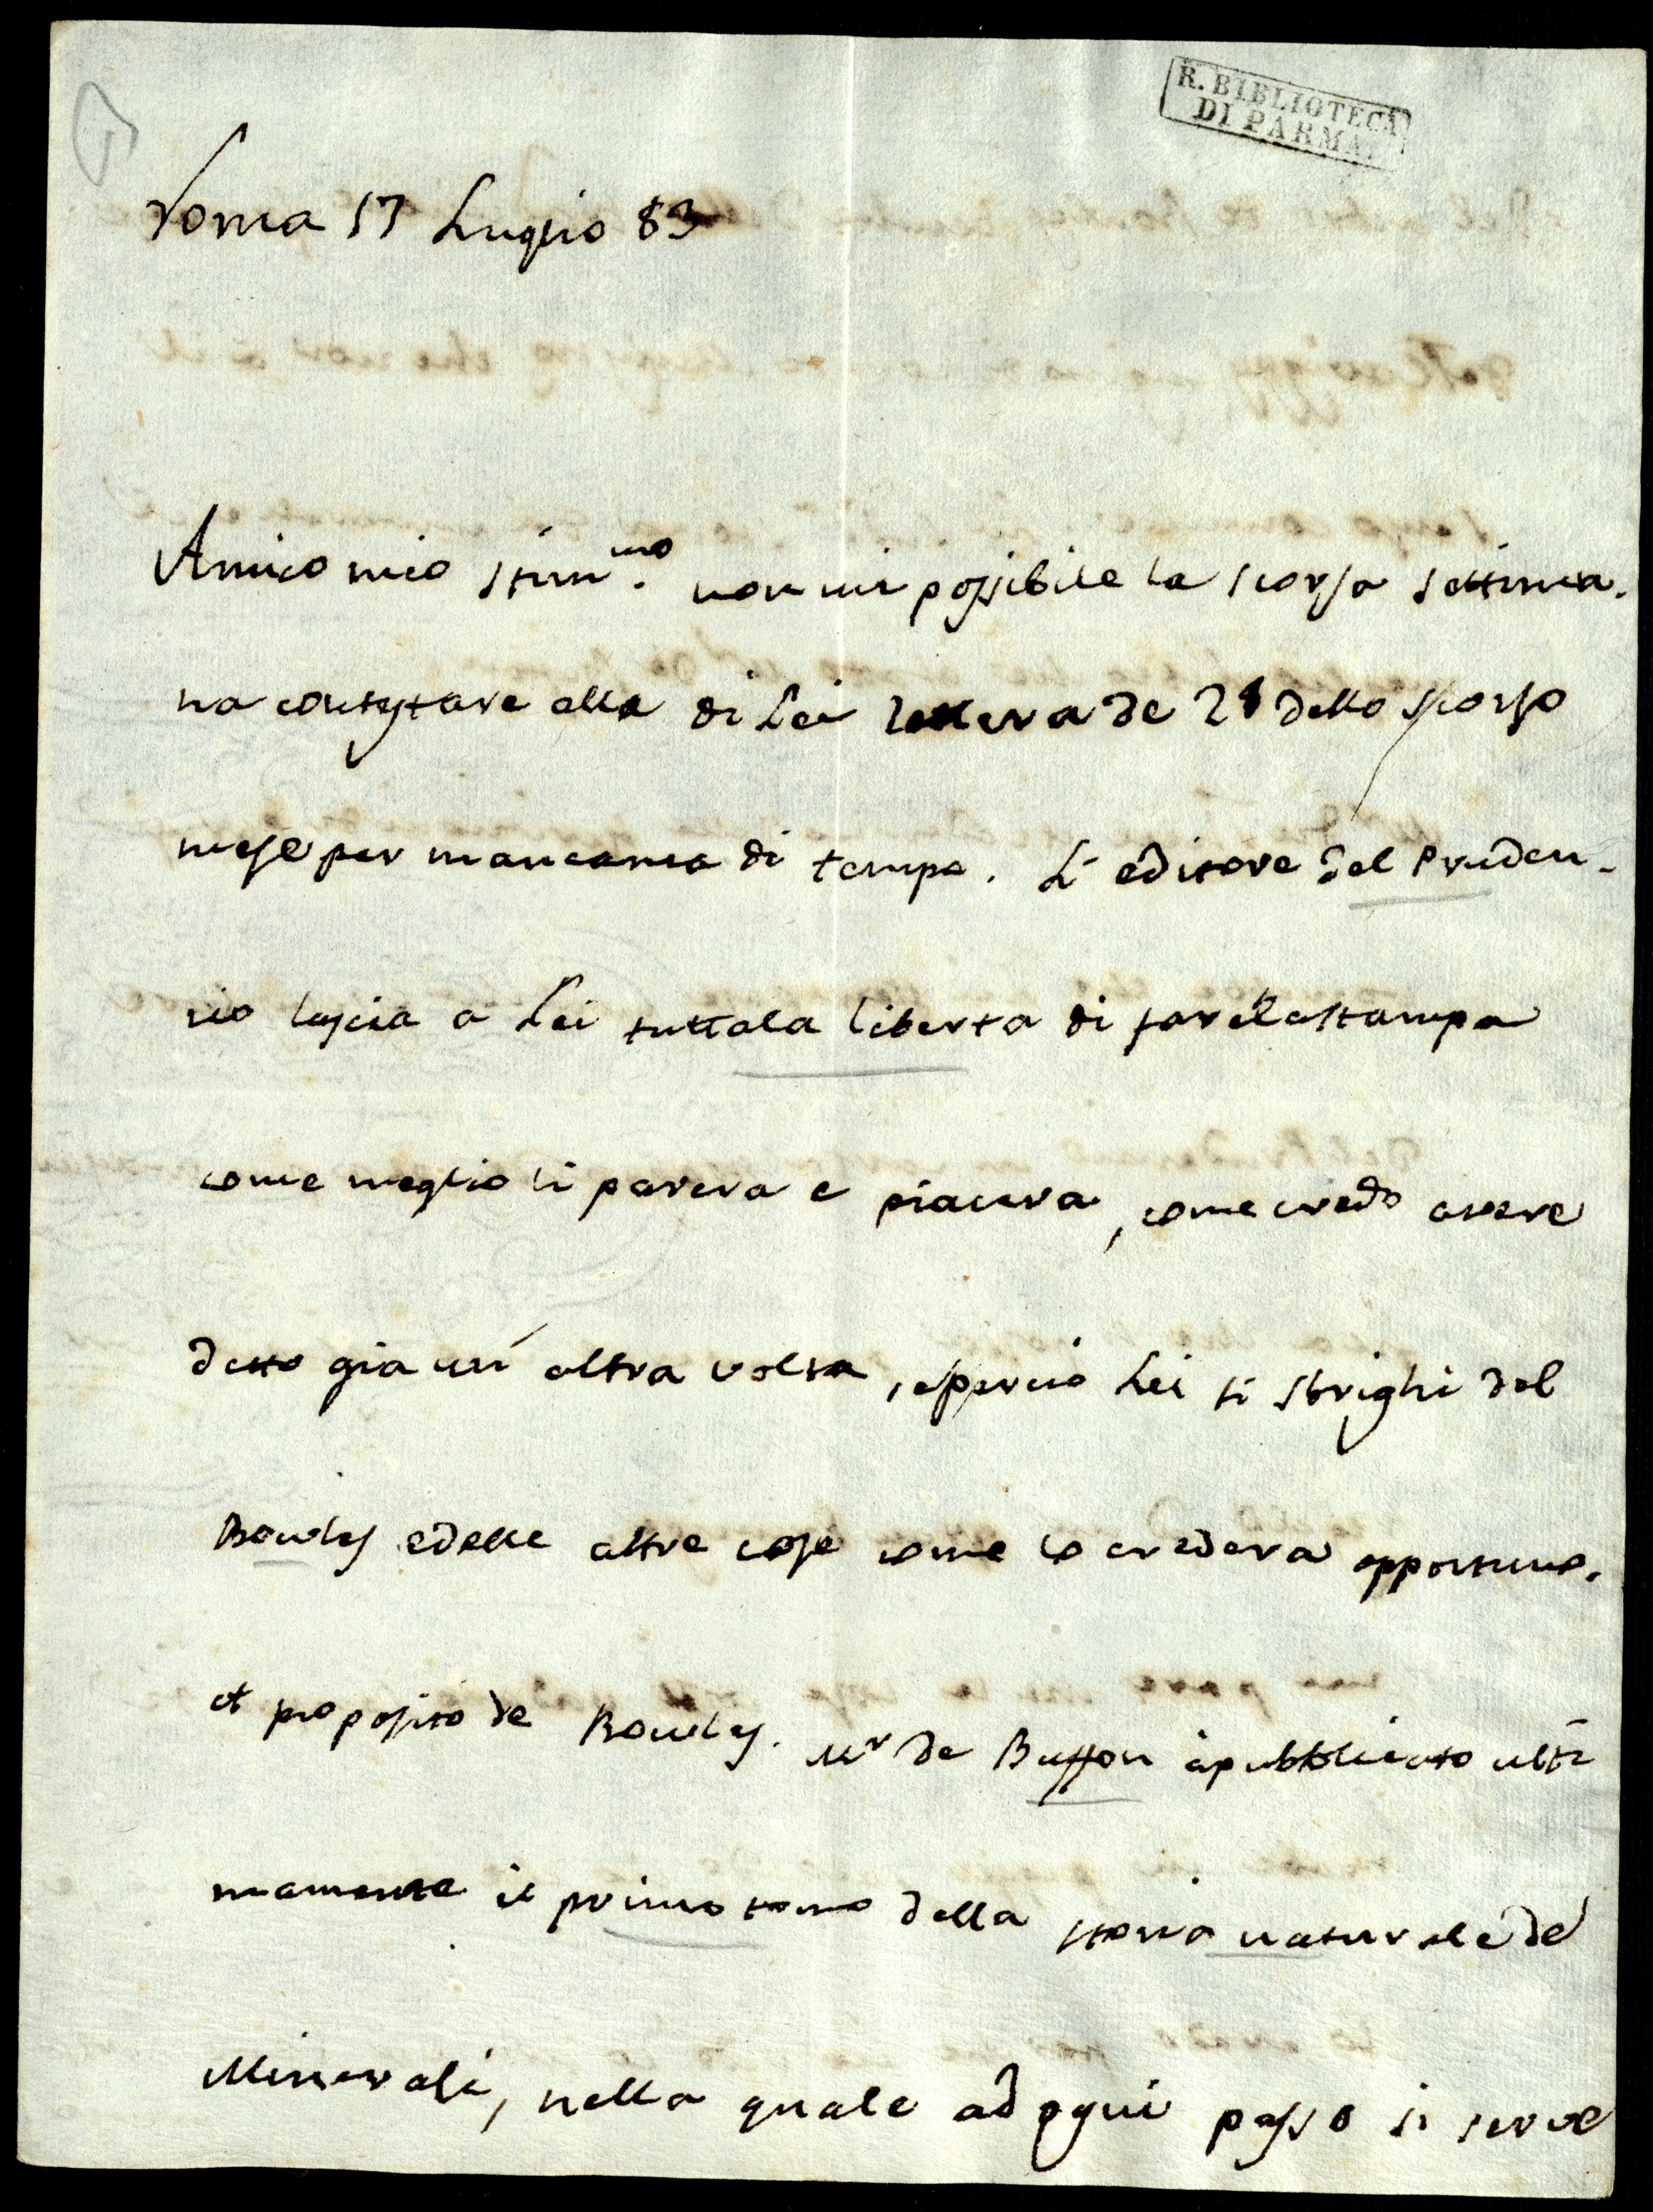 R. BIBLIOTECA
DI PARMA.
Roma 17 Luglio 83
Amico mio stim.mo non mi possibile la scorsa settima.
na contestare alla di Lei lettera de 28 dello scorso
mese per mancanza di tempo. L' editore del Pruden-
zio lascia a Lei tutta la liberta di fare la stampa
come meglio li parera e piacera, come credo avere
detto gia un' altra volta, e percio Lei si sbrighi del
Bowles e delle altre cose come lo credera opportuno.
A proposito de Bowles. Mr de Buffon à pubblicato ulti
mamente il primo tomo della storia naturale de
Minerali, nella quale ad ogni passo si serve